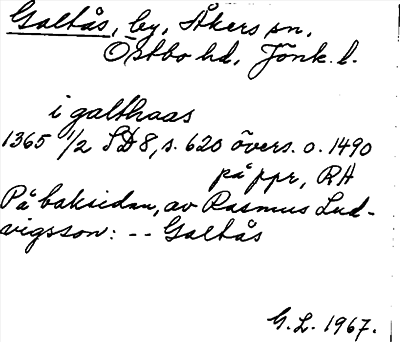 Galtås, by, Åkers sn,
Östbo hd, Jönk. l.
i galthaas
1365 1/2 SD 8, s. 620 övers. o. 1490
på ppr, RA
På baksidan, av Rasmus Lud-
vigsson: -- Galtås
G. L. 1967.